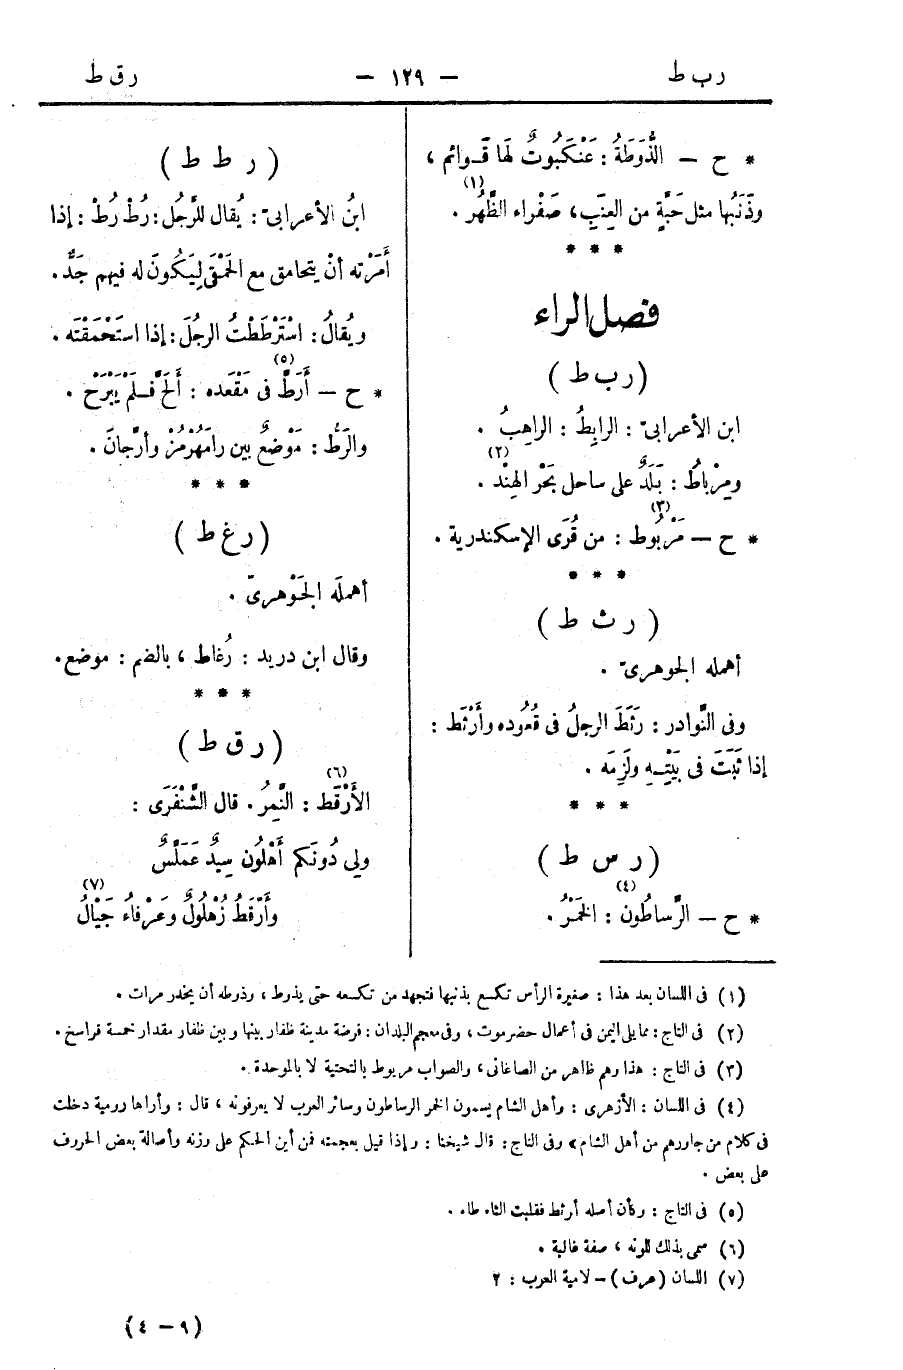 رب ط
— ١٢٩ —
رق ط
* ح — الذُّوَطَةُ : عَنْكَبُوتٌ لَها قَـوائم ،
وذَنَبُها مثل حَبَّةٍ من العِنَبِ، صَفْراء الظَّهْر (١) .
* * *
فصل الراء
( رب ط )
ابن الأعرابىّ : الرابِطُ : الراهِبُ .
ومِرْباطُ : بَلَدٌ على ساحل بَحْر الهِنْد (٢) .
* ح — مَرْبُوط (٣) : من قُرَى الإسكندرية .
* * *
( رث ط )
أهمله الجوهرىّ .
وفى النَّوادر : رَثَطَ الرجلُ فى قُعُوده وأَرْثَط :
إذا ثَبَتَ فى بَيْتِـهِ ولَزِمَه .
* * *
( رس ط )
* ح — الرَّساطُون (٤) : الخَمْرُ .
( رط ط )
ابنُ الأعرابىّ : يُقال للرَّجُل : رُطْ رُطْ : إذا
أَمَرْته أنْ يتحامق مع الحَمْقَى لِيَكُونَ له فيهم جَدٌّ .
ويُقالُ : اسْتَرْطَطْتُ الرجُلَ : إذا استَحْمَقْتَه .
* ح — أَرَطَّ (٥) فى مَقْعَده : أَلَحَّ فَـلَمْ يَبْرَحْ .
والرَّطُّ : مَوْضعٌ بين رامَهُرْمُزْ وأرَّجانَ .
* * *
( رغ ط )
أهملَه الجَوْهرىّ .
وقال ابن دريد : رُغاط ، بالضم : موضع .
* * *
( رق ط )
الأَرْقَط (٦) : النَّمِرُ . قال الشَّنْفَرَى :
ولِى دُونَكم أَهْلُون سِيدٌ عَمَلَّسٌ
وأَرْقَطُ زُهْلُولٌ وعَرْفاءُ جَيْأَلُ (٧)
(١) فى اللسان بعد هذا : صغيرة الرأس تكسع بذنبها فتجهد من تكسعه حتى يذوط ، وذوطه أن يخدر مرات .
(٢) فى التاج : مما يلى اليمن فى أعمال حضرموت ، وفى معجم البلدان : فرضة مدينة ظفار بينها وبين ظفار مقدار خمسة فراسخ .
(٣) فى التاج : هذا وهم ظاهر من الصاغانى ، والصواب مريوط بالتحتية لا بالموحدة .
(٤) فى اللسان : الأزهرى : وأهل الشام يسمون الخمر الرساطون وسائر العرب لا يعرفونه ، قال : وأراها رومية دخلت
فى كلام من جاورهم من أهل الشام » وفى التاج : قال شيخنا : وإذا قيل بعجمته فمن أين الحكم على وزنه وأصالة بعض الحروف
على بعض .
(٥) فى التاج : وكأن أصله أرثط فقلبت الثاء طاء .
(٦) سمى بذلك للونه ، صفة غالبة .
(٧) اللسان (عرف) – لامية العرب : ٢
(٩ – ٤)